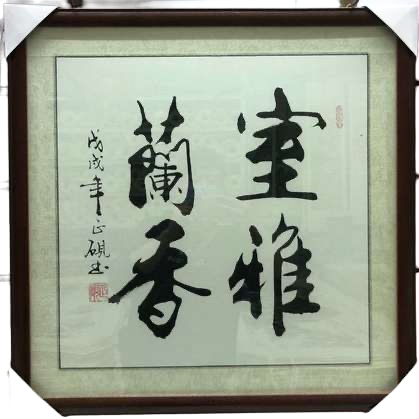 室雅
蘭香
戊戌年正硯书